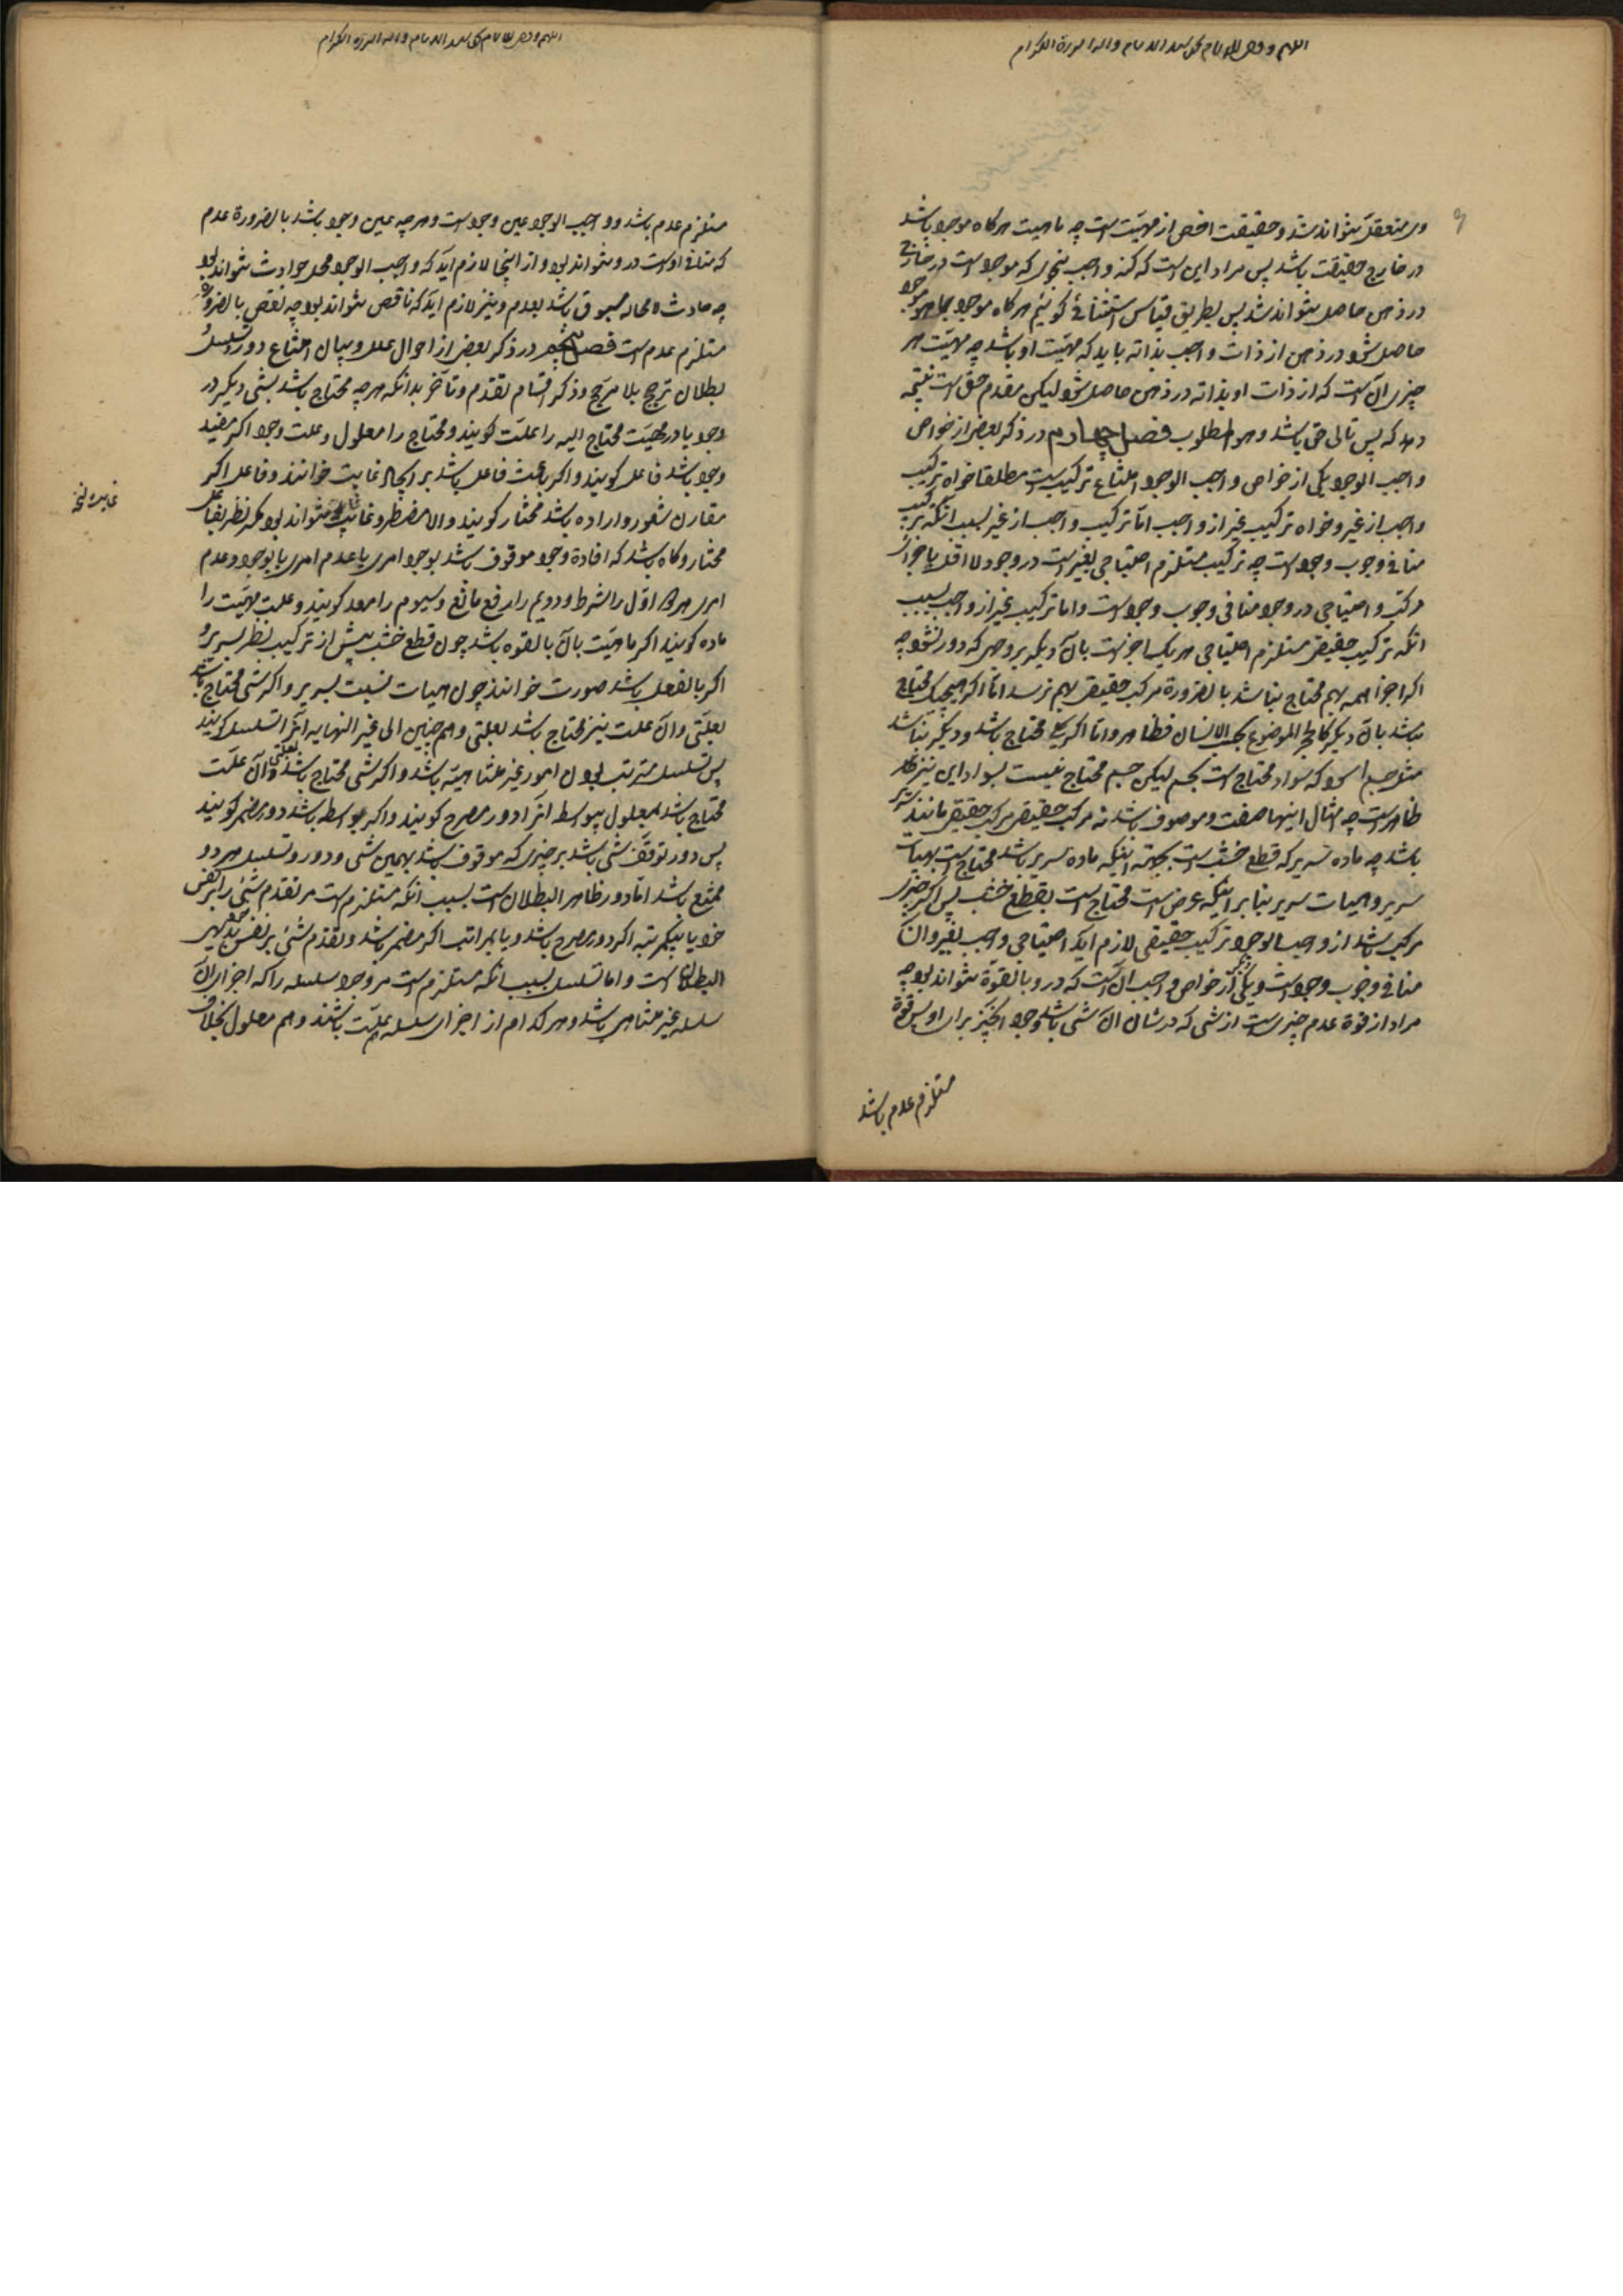 وی متعقل نتواند شد و حقیقت اخص از مهیّت است چه ماهیت هرکاه موجود باشد
در خارج حقیقت باشد پس مراد این است که کنه واجب بنحوی که موجود است در خارج
در ذهن حاصل نتواند شد پس بطریق قیاس استثنائی کوئیم هرکاه موجود
حاصل شود در ذهن از ذات واجب بذاته باید که مهیّت او باشد چه مهیّت هر
چیزی آن است که از ذات او بذاته در ذهن حاصل شود لیکن مقدم حق است نتیجه
دهد که پس تالی حق باشد و هو المطلوب فصل چهارم در ذکر بعض از خواص
واجب الوجود یکی از خواص واجب الوجود امتناع ترکیب است مطلقا خواه ترکیب
واجب از غیر و خواه ترکیب غیر از واجب امّا ترکیب واجب از غیر بسبب آنکه ترکیب
منافی وجوب وجود است چه ترکیب مستلزم احتیاجی بغیر است در وجود لا اقل باجزای
مرکب و احتیاجی در وجود منافی وجوب وجود است و اما ترکیب غیر از واجب بسبب
آنکه ترکیب حقیقی مستلزم احتیاجی هریک اجزاست بآن دیکر بروجهی که دور نشود چه
اکر اجزا همه بهم محتاج نباشد بالضرورة مرکب حقیقی بهم نرسد امّا اکر هیچیک محتاج
نباشد بآن دیکر کالحجر الموضوع بجنب الانسان فظاهر و امّا اکر یکی محتاج باشد و دیکر نباشد
مثل جسم اسود که سواد محتاج است بجسم لیکن جسم محتاج نیست بسواد این نیز
ظاهر است چه امثال اینها صفت و موصوف باشد نه مرکب حقیقی مرکب حقیقی مانند سریر
باشد چه ماده سریر که قطع خشب است بجهة اینکه ماده سریر باشد محتاج است بهیات
سریر و هیات سریر بنابر اینکه عرض است محتاج است بقطع خشب پس اکر چیزی
مرکب باشد از واجب الوجود ترکیب حقیقی لازم آید احتیاجی واجب بغیر و آن
منافی وجوب وجود است و یکی دیگر از خواص واجب آن است که در و بالقوّة نتواند بود چه
مراد از قوة عدم چیزی است از شی که در شان آن شی باشد وجود آن چیز برای او پس قوة
مستلزم عدم باشد
مستلزم عدم باشد و واجب الوجود عین وجود است و هرچه عین وجود باشد بالضرورة عدم
که منافی اوست در و نتواند بود و از اینجا لازم آید که واجب الوجود محل حوادث نتواند بود
چه حادث لا محاله مسبوق باشد بعدم و نیز لازم آید که ناقص نتواند بود چه نقص بالضرورة
مستلزم عدم است فصل پنجم در ذکر بعض از احوال علل و بیان امتناع دور و تسلسل
بطلان ترجیح بلا مرجح و ذکر اقسام تقدّم و تأخر بدانکه هرچه محتاج باشد بشی دیکر در
وجود یا در مهیّت محتاج الیه را علّت کویند و محتاج را معلول و علت وجود اکر مفید
وجود باشد فاعل کویند و اکر باعث فاعل باشد بر ایجاد غایت خوانند و فاعل اکر
مقارن شعور و اراده باشد مختار کویند و الا مضطر و غایت نتواند بود مکر نظر بفاعل
مختار و کاه باشد که افادة وجود موقوف باشد بوجود امری یا عدم امری یا بوجود و عدم
امری هردو اوّل را شرط و دویم را رفع مانع و سیوم را معد کویند و علت مهیّت را
ماده کویند اکر ماهیّت بآن بالقوه باشد چون قطع خشب پیش از ترکیب نظر بسریر و
اکر بالفعل باشد صورت خوانند چون هیات نسبت بسریر و اکر شی محتاج باشد
بعلّتی و آن علت نیز محتاج باشد بعلتی و هم چنین الی غیر النهایه آنرا تسلسل کویند
پس تسلسل مترتب بودن امور غیر متناهیّه باشد و اکر شی محتاج باشد بعلتی و آن علّت
محتاج باشد بمعلول بیواسطه آنرا دور مصرح کویند و اکر بواسطه باشد دور مضمر کویند
پس دور توقّف شی باشد بر چیزی که موقوف باشد بهمین شی و دور و تسلسل هر دو
ممتنع باشد امّا دور ظاهر البطلان است بسبب آنکه مستلزم است مر تقدم شیء را بر نفس
خود یا بیکمرتبه اکر دور مصرح باشد و یا بمراتب اکر مضمر باشد و تقدّم شیء بر نفس خود بدیهی
البطلان است و اما تسلسل بسبب آنکه مستلزم است مر وجود سلسله را که اجزای آن
سلسله غیر متناهی باشد و هر کدام از اجزای سلسله هم علّت باشند و هم معلول بخلاف